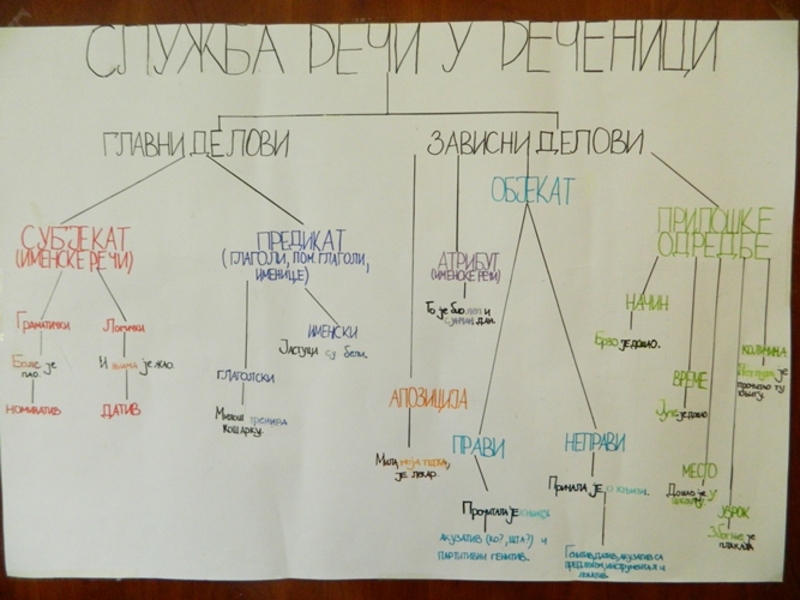 СЛУЖБА РЕЧИ У РЕЧЕНИЦИ
ГЛАВНИ ДЕЛОВИ
ЗАВИСНИ ДЕЛОВИ
СУБЈЕКАТ
(ИМЕНСКЕ РЕЧИ)
ГРАМАТИЧКИ
је
пао.
НОМИНАТИВ
ЛОГИЧКИ
И њима је жао.
ДАТИВ
ПРЕДИКАТ
(ГЛАГОЛИ, ПОМ. ГЛАГОЛИ,
ИМЕНИЦЕ)
ГЛАГОЛСКИ
Милош тренира
кошарку.
ИМЕНСКИ
Јастуци су бели.
АПОЗИЦИЈА
Мила, моја тетка,
је лекар.
АТРИБУТ
(ИМЕНСКЕ РЕЧИ)
То је био леп и
сунчан дан.
ОБЈЕКАТ
ПРАВИ
Прочитала је књигу.
АКУЗАТИВ (КО?, ШТА?) И
ПАРТИТИВНИ ГЕНИТИВ.
НЕПРАВИ
Причала је о књигама.
Генитив, датив, акузатив са
предлогом, инструментал и
локатив.
ПРИЛОШКЕ
ОДРЕДБЕ
НАЧИН
Брзо је дошао.
ВРЕМЕ
Јуче је дошао
МЕСТО
Дошао је у
УЗРОК
је
плакала
КОЛИЧИНА
је
прочитао ту
књигу.